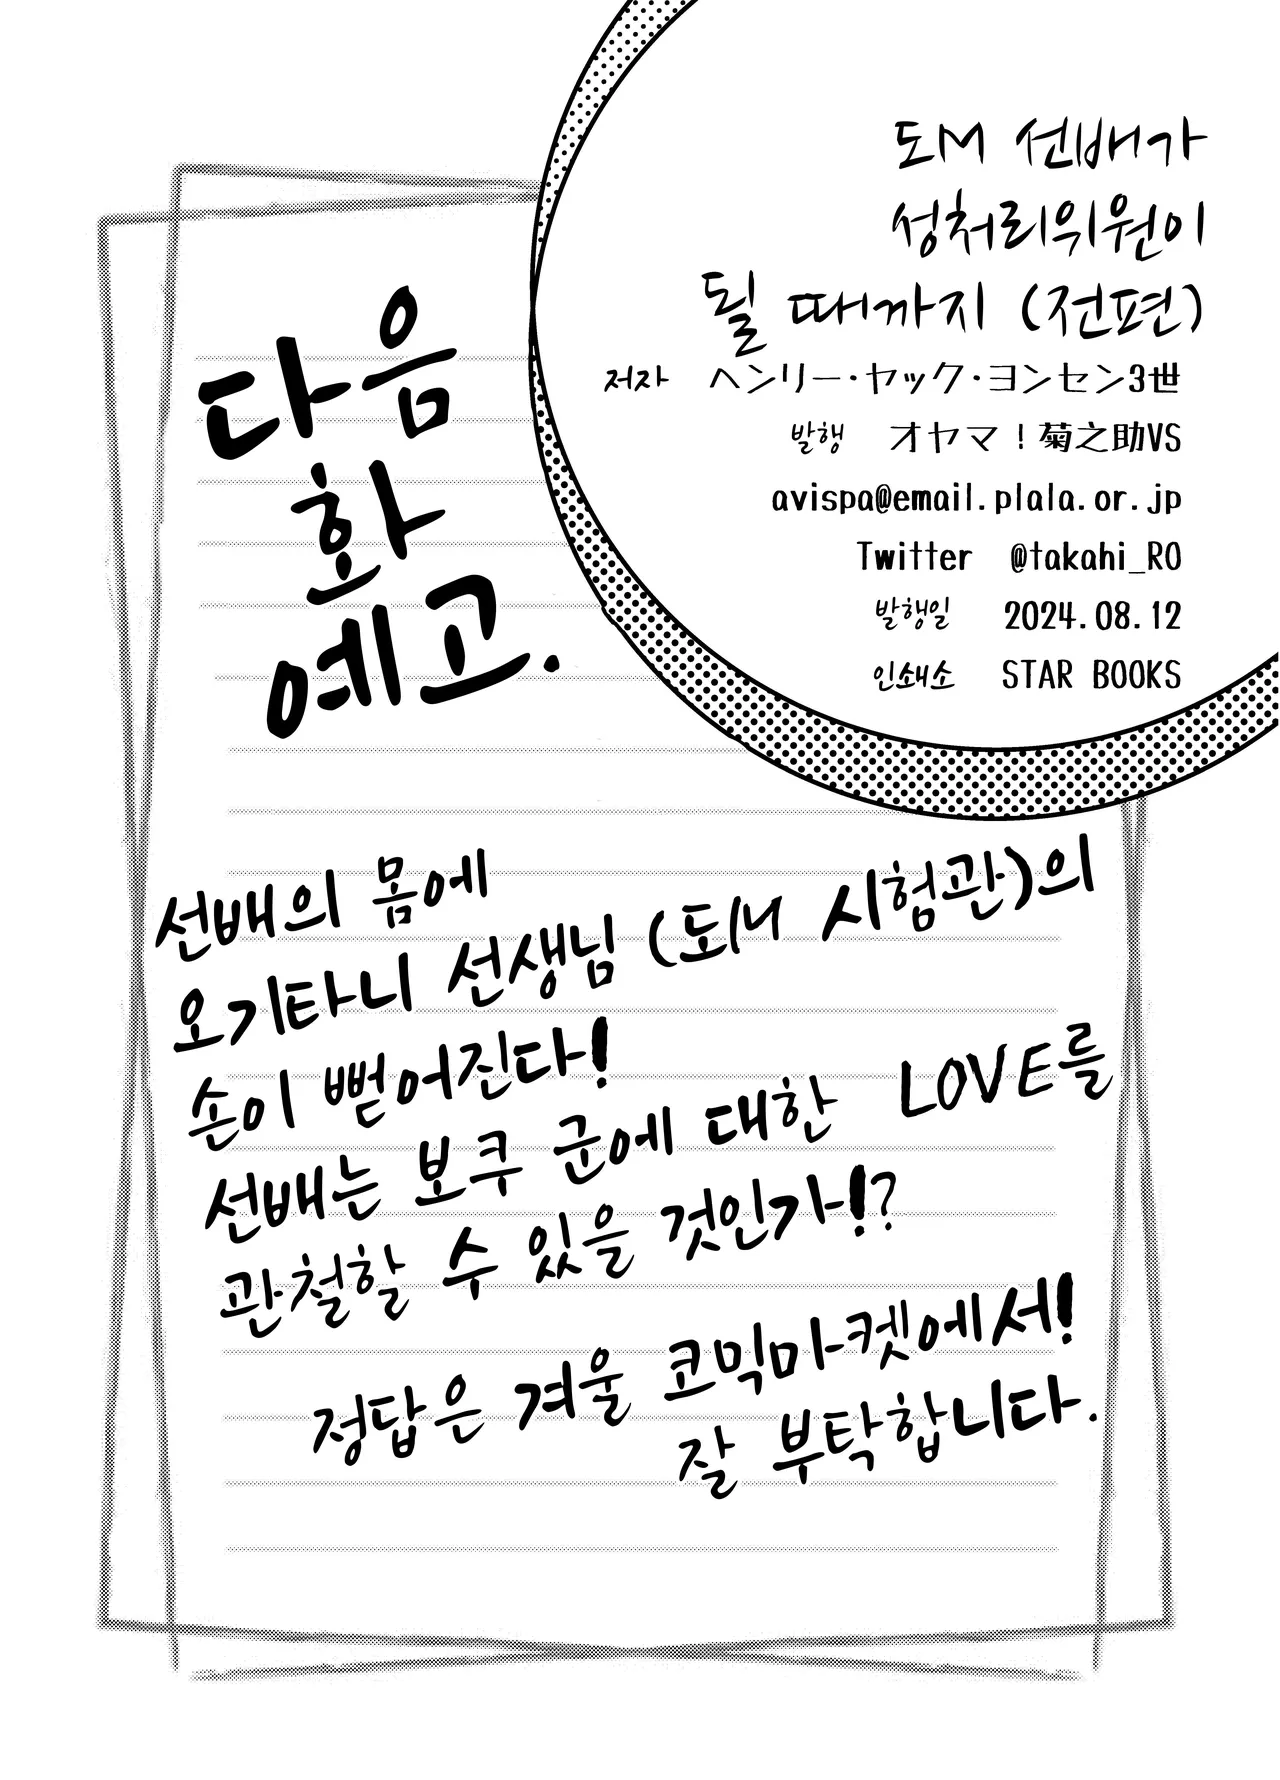 도M 선배가
성처리위원이
될 때까지 (전편)
저자 ヘンリー・ヤック・ヨンセン3世
발행 オヤマ！菊之助VS
avispa@email.plala.or.jp
Twitter @takahi_RO
발행일 2024.08.12
인쇄소 STAR BOOKS
다음
화
예고.
선배의 몸에
오기타니 선생님 (도M 시험관)의
손이 뻗어진다!
선배는 보쿠 군에 대한 LOVE를
관철할 수 있을 것인가!?
정답은 겨울 코믹마켓에서!
잘 부탁합니다.